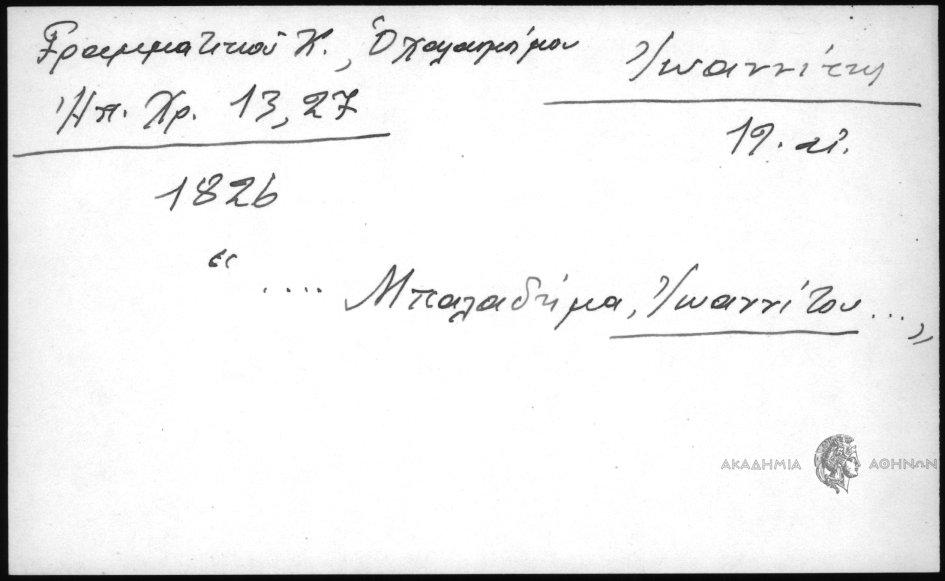 Γραμματικού Κ., Ὁ χαλασμός μου
Ἠπ. Χρ. 13, 27
Ἰωαννίτης
19. αἰ.
1826
“ .... Μπαλαδήμα, Ἰωαννίτου ... „
ΑΚΑΔΗΜΙΑ ΑΘΗΝΩΝ